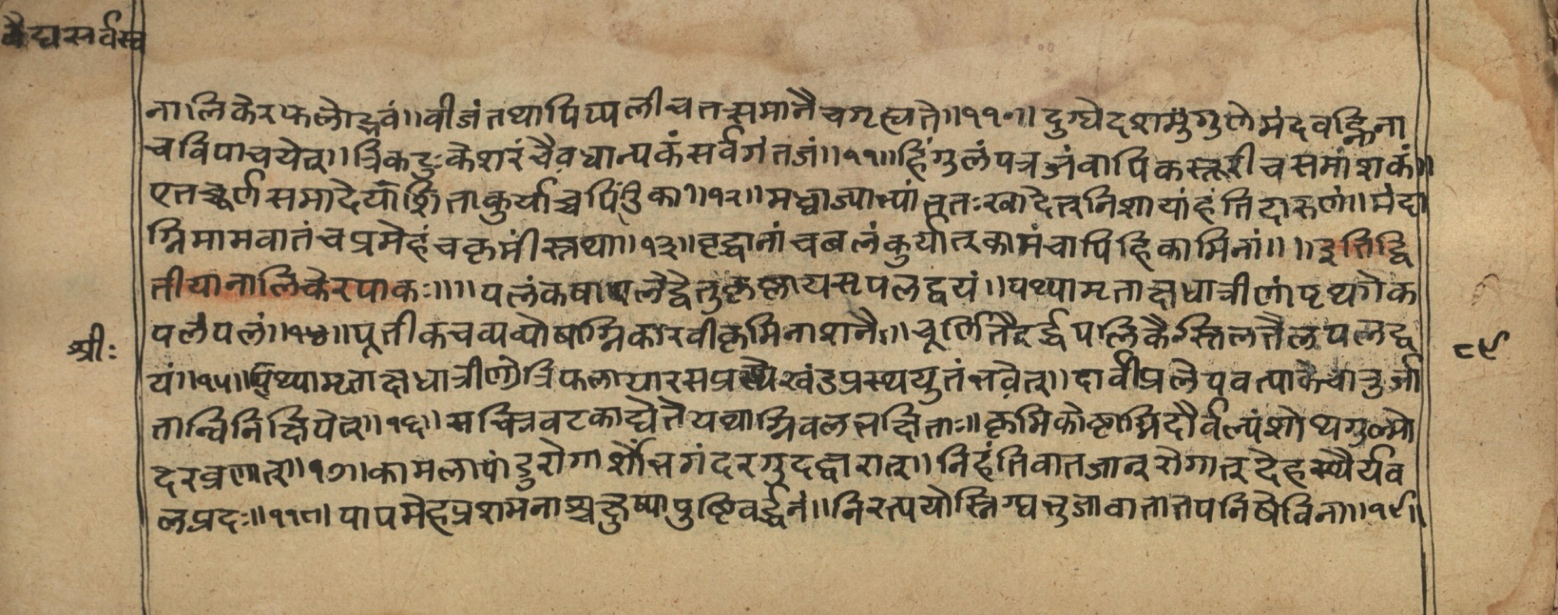 वैद्यसर्वस्व
नालिकेरफलोद्भवं॥वीजंतथापिप्पलीचतत्समानैचगृह्यते॥११०॥दुग्धेदशगुणेमंदवह्निना
चविपाचयेत्॥त्रिकटुःकेशरंचैवधान्यकंसर्वगंतजं॥११॥हिंगुलंपत्रजंवापिकस्तूरीचसमांशकं॥
एतच्चूर्णसमादेयंकुर्याच्चपिंडिका॥१२॥मध्वाज्याभ्यांतुतःखादेत्निशायांहंतिदारुणं॥मंदा
ग्निमामवातंचप्रमेहंचकृमींस्तथा॥१३॥वृद्धानांचबलंकुर्यात्कामंचापिहिकामिनां॥॥इतिद्वि
तीयानालिकेरपाकः॥॥पलंकषापलेद्वेतुपलद्वयं॥पथ्यामृताक्षधात्रीणांपृथगेक
पलंपलं॥१४॥पूतीकचव्यव्योषाग्निकारवीकृमिनाशनैः॥चूर्णितैरर्द्धपलिकैस्तिलतैलपलद्व
श्रीः
८९
यं॥१५॥पथ्यामृताक्षधात्रीणांत्रिफलायारसप्रस्थैखंडप्रस्थयुतंभवेत्॥दार्वीप्रलेपवत्पाकेचातुर्जा
तान्विनिक्षिपेत्॥१६॥सचित्रवटकाद्येतेयथाग्निवलभक्षिताः॥कृमिकोष्टाग्निदौर्वल्यंशोथगुल्मो
दरव्रणात्॥१७॥कामलापांडुरोगार्शोभगंदरगुदद्वारात्॥निहंतिवातजान्रोगान्देहस्थैर्यव
लप्रदः॥११८॥पापमेहप्रशमनाश्चक्षुष्यापुष्टिवर्द्धनं॥निरत्पयोस्निग्धभुजावातातपनिषेविना॥१९॥